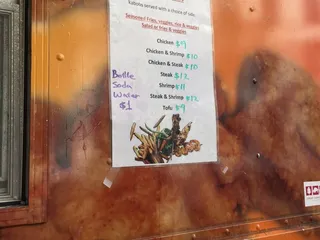 options served with a choice of side.
Seasoned fries, veggies, rice & veggies
Salad or fries & veggies
Chicken $9
Chicken & Shrimp $10
Chicken & Steak $10
Steak $12
Shrimp $11
Steak & Shrimp $12
Tofu $9
Bottle
Soda
Water
$1